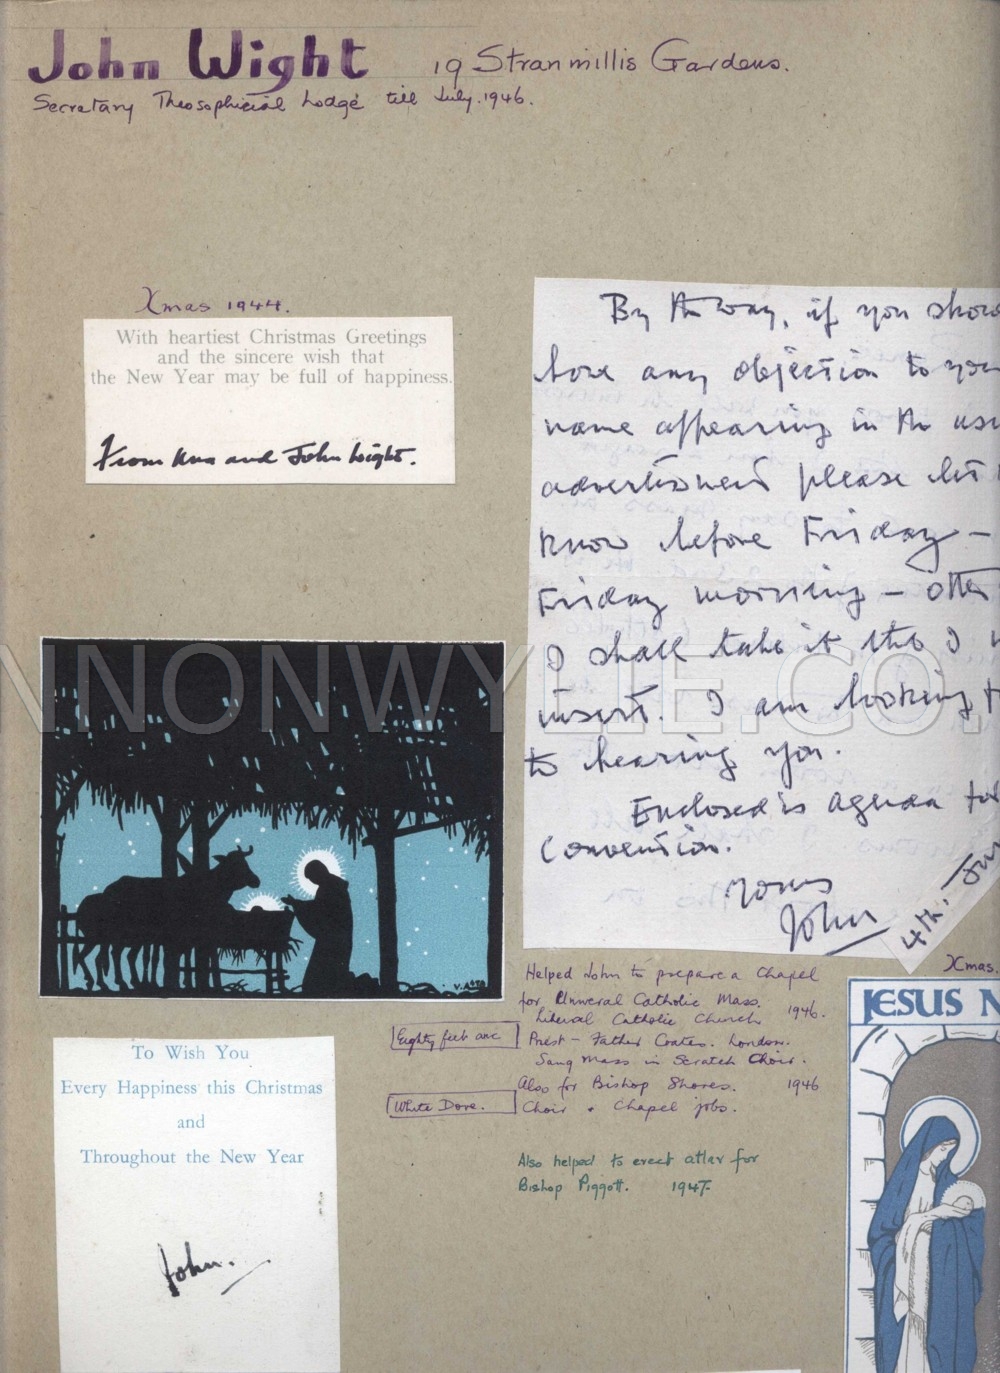 John Wight 19 Stranmillis Gardens.
Secretary Theosophical Lodge till July.1946.
Xmas 1944.
With heartiest Christmas Greetings
and the sincere wish that
the New Year may be full of happiness.
From Una and John Wight.
By the way, if you shou
have any objection to you
name appearing in the usu
advertisment please let
know before Friday –
Friday morning –
I shall take it tho I
insert. I am looking
to hearing you.
Enclosed is agenda for
Convention.
Yours
John
4th.
VNONWYLIE.CO
V. ASTA
To Wish You
Every Happiness this Christmas
and
Throughout the New Year
John.
Helped John to prepare a Chapel
for Universal Catholic Mass.
Liberal Catholic Church 1946.
Eighty feet one Priest – Father Coates. London.
Sang Mass in Scratch Choir.
Also for Bishop Shores. 1946
White Dove. Choir + Chapel jobs.
Also helped to erect atlar for
Bishop Piggott. 1947.
Xmas.
JESUS N